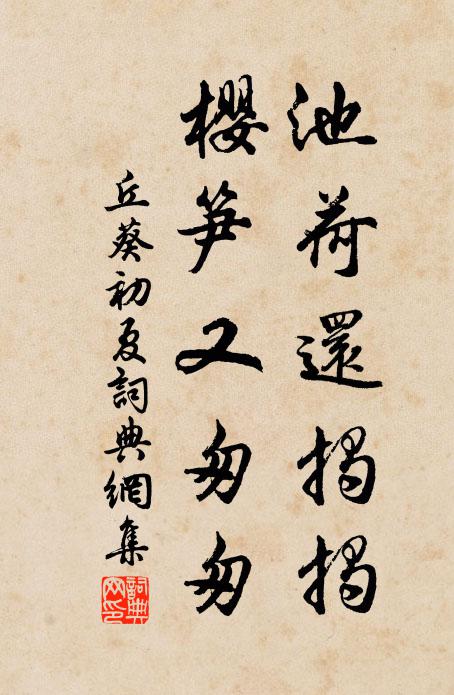 池荷還揭揭
櫻笋又匆匆
丘葵初夏詞典網集
詞典網印